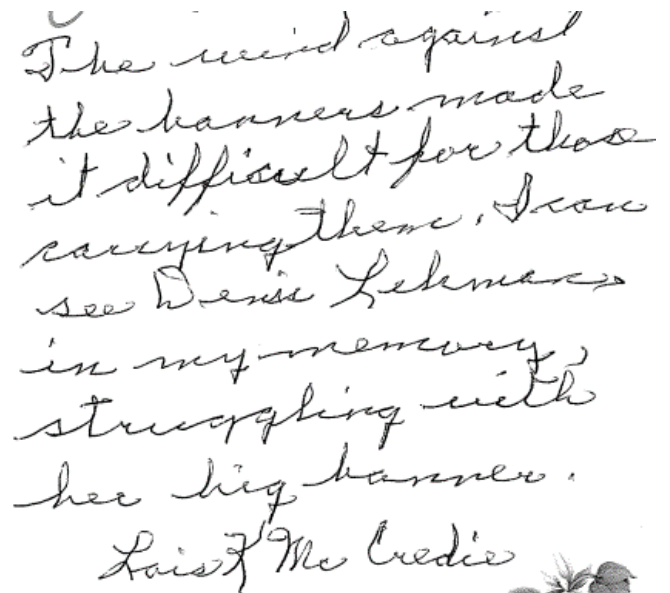 The wind against
the banners made
it difficult for those
carrying them. I can
see Denise Lehman
in my memory,
struggling with
her big banner.
Lois K Mc Credie